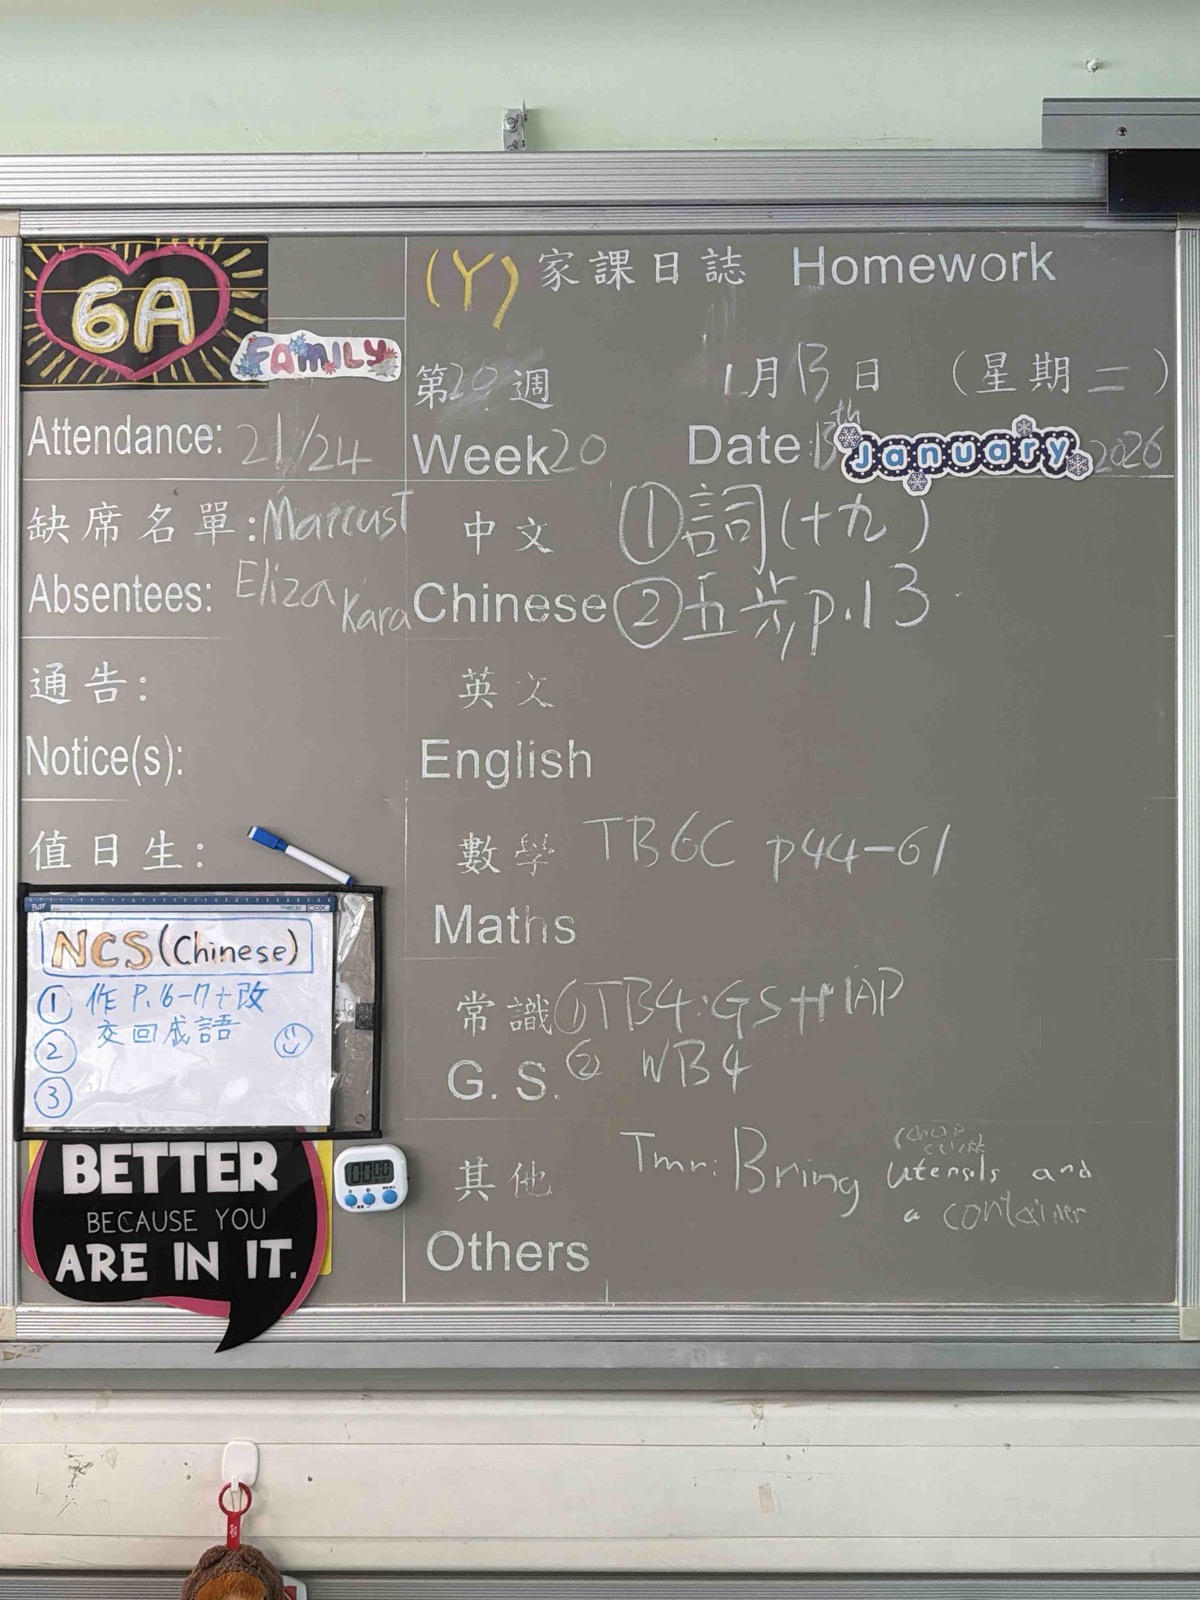 6A
FAMILY
(Y) 家課日誌 Homework
第20週 1月13日 (星期二)
Attendance: 21/24
Week 20 Date: 13th January 2026
缺席名單: Marcus T
Absentees: Eliza Kara
中文 ①詞(十九)
Chinese ②五步 p.13
通告:
Notice(s):
英文
English
值日生:
數學 TB6C p44-61
Maths
NCS (Chinese)
① 作 P.16-17+改
交回成語
②
③
常識 ① TB4: GS+MAP
G. S. ② WB4
其他 Tmr: Bring utensils and
a container
Others
BETTER
BECAUSE YOU
ARE IN IT.
00:00